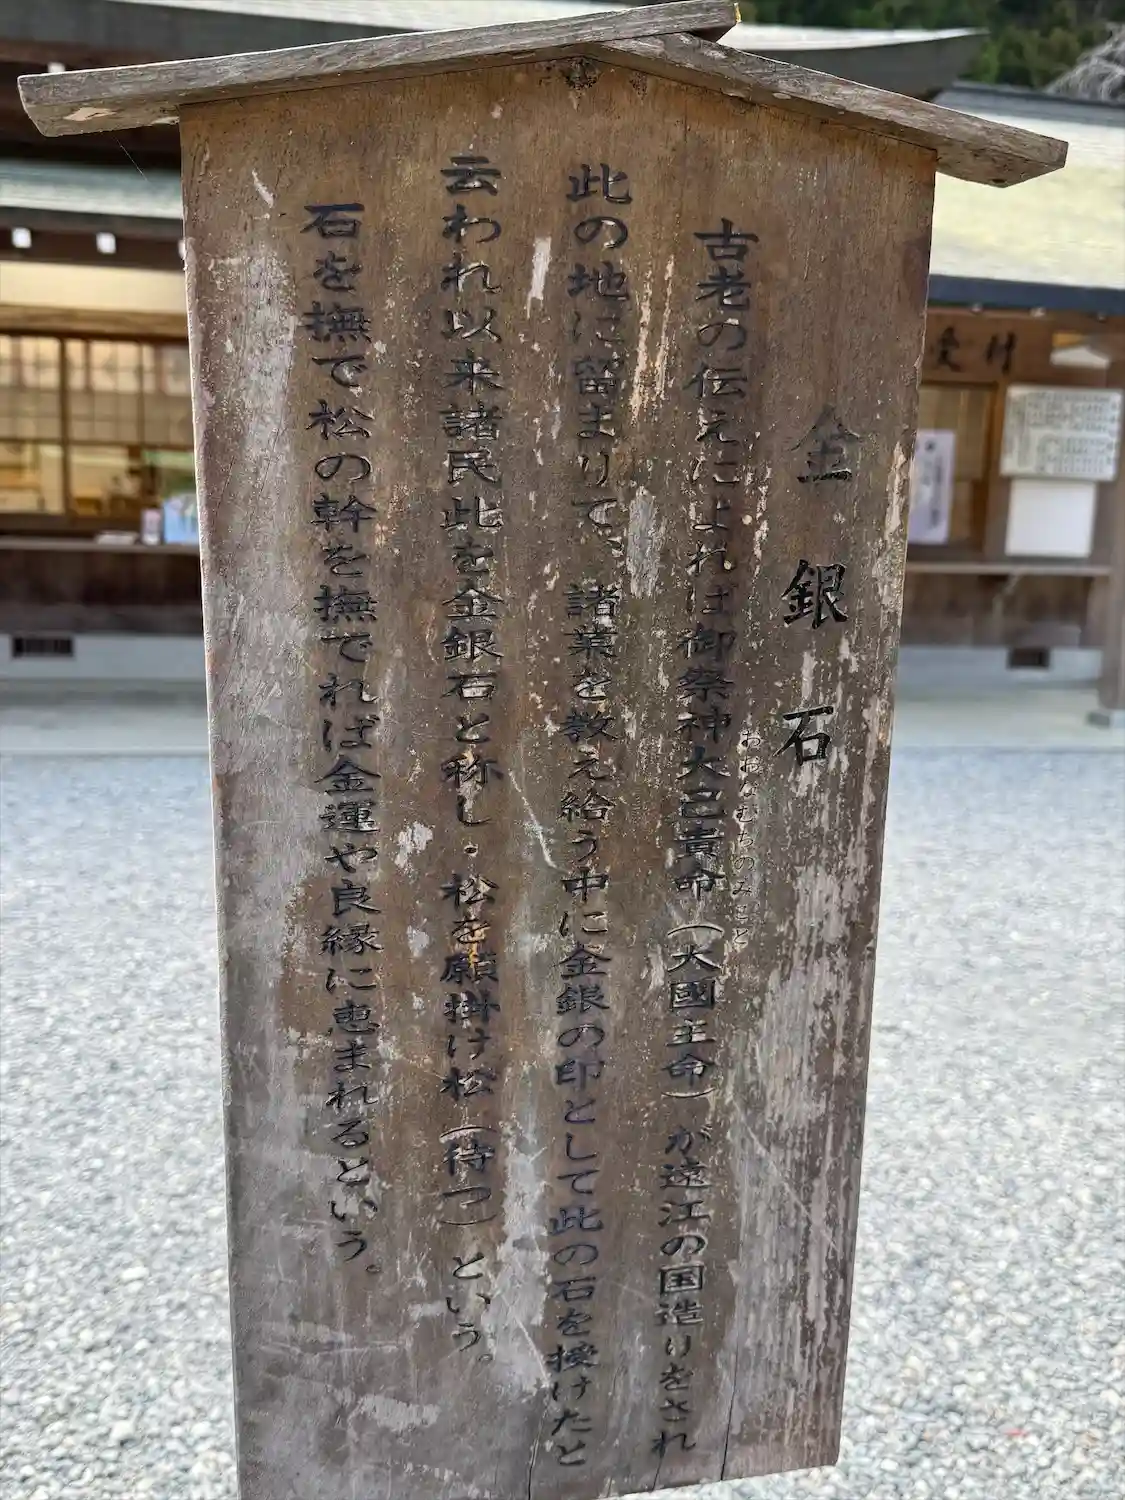 金銀石
古老の伝えによれば御祭神大己貴命(大國主命)が遠江の国造りをされ
おおなむちのみこと
此の地に留まりて、諸業を教え給う中に金銀の印として此の石を授けたと
云われ以来諸民此を金銀石と称し・松を願掛け松(待つ)という。
石を撫で松の幹を撫でれば金運や良縁に恵まれるという。
受付